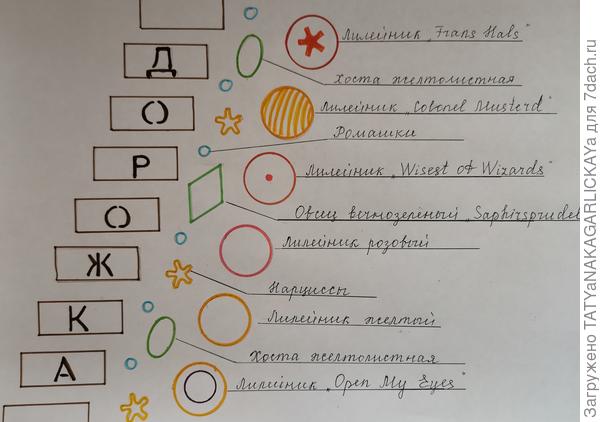 Лилейник „Frans Hals"
Д
Хоста желтолистная
Лилейник „Colonel Musterd"
О
Ромашки
Р
Лилейник „Wisest of Wizards"
Овсец вечнозелёный „Saphirsprudel
О
Лилейник розовый
Ж
Нарциссы
К
Лилейник желтый
Хоста желтолистная
А
Лилейник „Open My Eyes"
Загружено TATYaNAKAGARLICKAYa для 7dach.ru